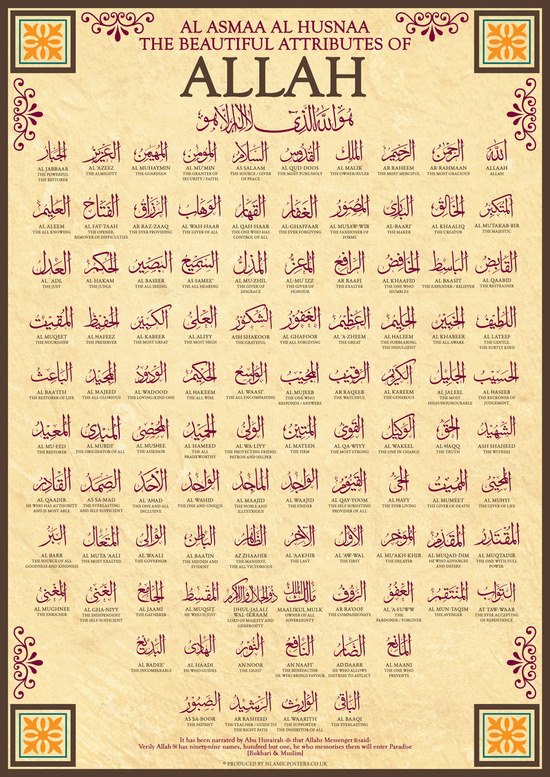 AL ASMAA AL HUSNAA
THE BEAUTIFUL ATTRIBUTES OF
ALLAH
هُوَ اللهُ الَّذِي لَا إِلٰهَ إِلَّا هُوَ
الله
ALLAAH
ALLAH
الرحمن
AR-RAHMAAN
THE MOST GRACIOUS
الرحيم
AR RAHEEM
THE MOST MERCIFUL
الملك
AL MALIK
THE OWNER/RULER
القدوس
AL QUD-DOOS
THE MOST PURE/HOLY
السلام
AS SALAAM
THE SOURCE / GIVER
OF PEACE
المؤمن
AL MU'MIN
THE GRANTER OF
SECURITY / FAITH
المهيمن
AL MUHAYMIN
THE GUARDIAN
العزيز
AL 'AZEEZ
THE ALMIGHTY
الجبار
AL JABBAAR
THE POWERFUL
THE RESTORER
المتكبر
AL MUTAKAB-BIR
THE MAJESTIC
الخالق
AL KHAALIQ
THE CREATOR
البارئ
AL-BAARI'
THE MAKER
المصور
AL MUSAW-WIR
THE FASHIONER OF
FORMS
الغفار
AL-GHAFFAAR
THE EVER FORGIVING
القهار
AL QAH-HAAR
THE ONE WHO HAS
CONTROL OF ALL
الوهاب
AL WAH-HAAB
THE GIVER OF ALL
الرزاق
AR RAZ-ZAAQ
THE EVER PROVIDING
الفتاح
AL FAT-TAAH
THE OPENER,
REMOVER OF DIFFICULTIES
العليم
AL ALEEM
THE ALL KNOWING
القابض
AL QAABID
THE RESTRAINER
الباسط
AL BAASIT
THE EXPANDER / RELIEVER
الخافض
AL KHAAFID
THE ONE WHO
HUMBLES
الرافع
AR RAAFI
THE EXALTER
المعز
AL MU'IZZ
THE GIVER OF
HONOUR
المذل
AL MU-ZHIL
THE GIVER OF
DISGRACE
السميع
AS SAMEE'
THE ALL HEARING
البصير
AL BASEER
THE ALL SEEING
الحكم
AL HAKAM
THE JUDGE
العدل
AL 'ADL
THE JUST
اللطيف
AL LATEEF
THE GENTLE,
SUBTLY KIND
الخبير
AL KHABEER
THE ALL AWARE
الحليم
AL HALEEM
THE FORBEARING,
THE INDULGENT
العظيم
AL 'A-ZHEEM
THE GREAT
الغفور
AL GHAFOOR
THE ALL FORGIVING
الشكور
ASH SHAKOOR
THE GRATEFUL
العلي
AL ALIYY
THE MOST HIGH
الكبير
AL KABEER
THE MOST GREAT
الحفيظ
AL HAFEEZ
THE PRESERVER
المقيت
AL MUQEET
THE NOURISHER
الحسيب
AL HASEEB
THE RECKONER OF
JUDGEMENT
الجليل
AL JALEEL
THE MOST
HIGH/HOUNOURABLE
الكريم
AL KAREEM
THE GENEROUS
الرقيب
AR RAQEEB
THE WATCHFUL
المجيب
AL MUJEEB
THE ONE WHO
RESPONDS / ANSWERS
الواسع
AL WAASI'
THE ALL ENCOMPASSING
الحكيم
AL HAKEEM
THE ALL WISE
الودود
AL WADOOD
THE LOVING KIND ONE
المجيد
AL MAJEED
THE ALL GLORIOUS
الباعث
AL BAAITH
THE RESTORER OF LIFE
الشهيد
ASH SHAHEED
THE WITNESS
الحق
AL-HAQQ
THE TRUTH
الوكيل
AL WAKEEL
THE ONE IN CHARGE
القوي
AL QA-WIYY
THE MOST STRONG
المتين
AL MATEEN
THE FIRM
الولي
AL WA-LIYY
THE PROTECTING FRIEND,
PATRON AND HELPER
الحميد
AL HAMEED
THE ALL
PRAISEWORTHY
المحصي
AL MUHSEE
THE ASSESOR
المبدئ
AL MUBDI'
THE ORIGINATOR OF ALL
المعيد
AL MU-EED
THE RESTORER
المحيي
AL MUHYI
THE GIVER OF LIFE
المميت
AL MUMEET
THE GIVER OF DEATH
الحي
AL HAYY
THE EVER LIVING
القيوم
AL QAY-YOOM
THE SELF SUBSISTING
PROVIDER OF ALL
الواجد
AL WAAJID
THE FINDER
الماجد
AL MAAJID
THE NOBLE AND
ILLUSTRIOUS
الواحد
AL WAHID
THE ONE AND UNIQUE
الأحد
AL 'AHAD
THE ONE AND ALL
INCLUSIVE
الصمد
AS SA-MAD
THE EVERLASTING
AND SELF SUFFICIENT
القادر
AL QAADIR
HE WHO HAS AUTHORITY
AND IS MOST ABLE
المقتدر
AL MUQTADIR
THE ONE WITH FULL
POWER
المقدم
AL MUQAD-DIM
HE WHO ADVANCES
AND DEFERS
المؤخر
AL MU'AKH-KHIR
THE DELAYER
الأول
AL 'AW-WAL
THE FIRST
الآخر
AL 'AAKHIR
THE LAST
الظاهر
AZ ZHAAHIR
THE MANIFEST,
THE ALL VICTORIOUS
الباطن
AL BAATIN
THE HIDDEN AND
EVIDENT
الوالي
AL WAALI
THE GOVERNOR
المتعالي
AL MUTA'AALI
THE MOST EXALTED
البر
AL BARR
THE SOURCE OF ALL
GOODNESS AND KINDNESS
التواب
AT TAW-WAAB
THE EVER ACCEPTING
OF REPENTENCE
المنتقم
AL MUN-TAQIM
THE AVENGER
العفو
AL 'A-FUWW
THE
PARDONER / FORGIVER
الرؤوف
AR RA'OOF
THE COMPASSIONATE
مالك الملك
MAALIKUL MULK
OWNER OF ALL
SOVEREIGNTY
ذو الجلال والإكرام
DHUL-JALALI
WAL-IKRAAM
LORD OF MAJESTY AND
GENEROSITY
المقسط
AL MUQSIT
HE IS JUST
الجامع
AL JAAMI
THE GATHERER
الغني
AL GHA-NIYY
THE INDEPENDENT
THE SELF-SUFFICIENT
المغني
AL MUGHNEE
THE ENRICHER
المانع
AL MAANI
THE ONE WHO
PREVENTS
الضار
AD DAARR
HE WHO ALLOWS
DISTRESS TO AFFLICT
النافع
AN NAAFI'
THE BENEFACTOR
HE WHO BRINGS FAVOUR
النور
AN NOOR
THE LIGHT
الهادي
AL HAADI
HE WHO GUIDES
البديع
AL BADEE'
THE INCOMPARABLE
الباقي
AL BAAQI
THE EVERLASTING
الوارث
AL WAARITH
THE SUPPORTER
THE INHERITOR OF ALL
الرشيد
AR RASHEED
THE TEACHER / GUIDE TO
THE RIGHT PATH
الصبور
AS SA-BOOR
THE PATIENT
It has been narrated by Abu Hurairah that Allahs Messenger said:
Verily Allah has ninety-nine names, hundred but one, he who memorises them will enter Paradise
[Bukhari & Muslim]
© PRODUCED BY ISLAMICPOSTERS.CO.UK